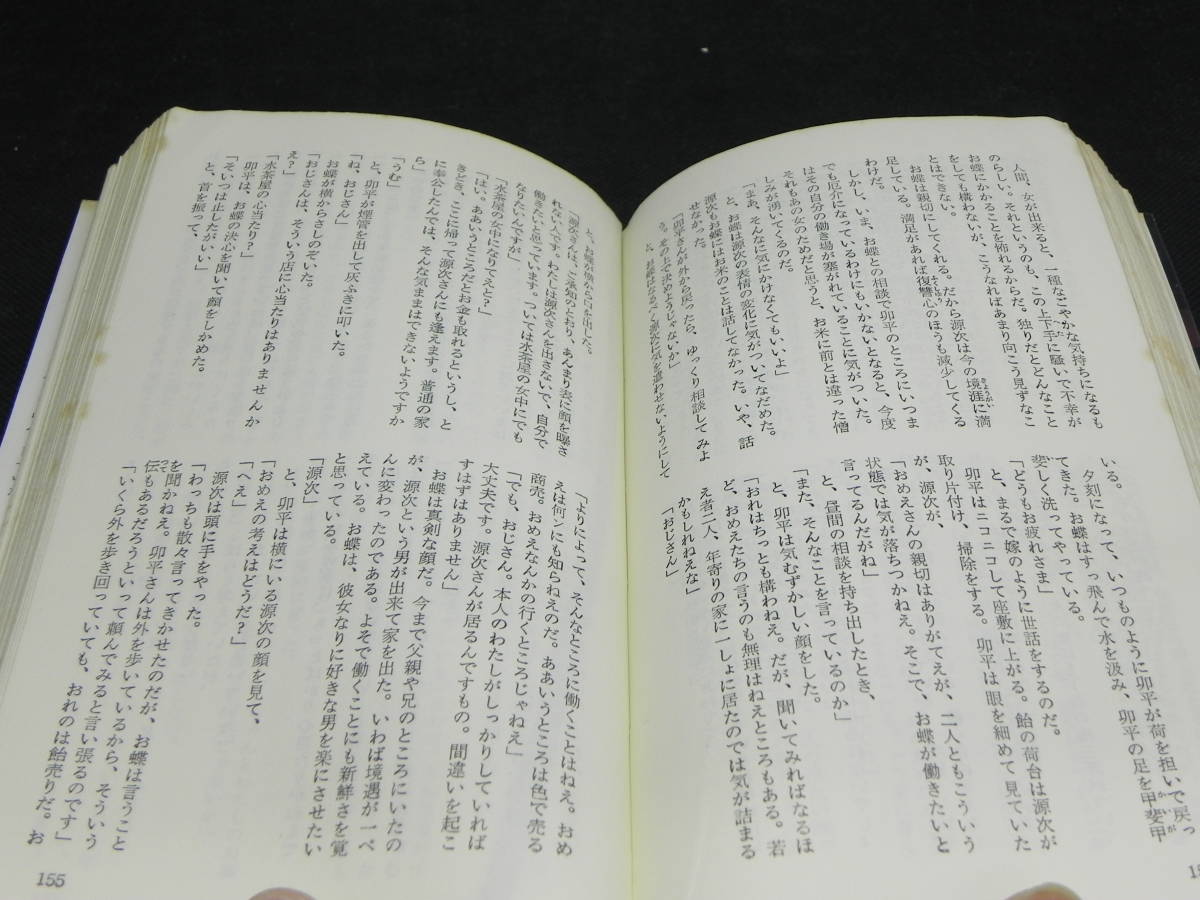 人間、女が出来ると、一種なごやかな気持ちになるも
のらしい。それというのも、この上下手に騒いで不幸が
お蝶にかかることを怖れるからだ。独りだとどんなこと
をしても構わないが、こうなればあまり向こう見ずなこ
とはできない。
お蝶は親切にしてくれる。だから源次は今の境涯に満
足している。満足があれば復讐心のほうも減少してくる
わけだ。
しかし、いま、お蝶との相談で卯平のところにいつま
でも厄介になっているわけにもいかないとなると、今度
はその自分の働き場が塞がれていることに気がついた。
それもあの女のためだと思うと、お米に前とは違った憎
しみが湧いてくるのだ。
「まあ、そんなに気にかけなくてもいいよ」
と、お蝶は源次の表情の変化に気がついてなだめた。
源次もお蝶には米のことは話してなかった。いや、話
せなかった。
「卯平さんが外から戻ったら、ゆっくり相談してみよ
う。その上で決めようじゃないか」
と、お蝶はなるべく源次に気を遣わせないようにして
いる。
夕刻になって、いつものように卯平が荷を担いで戻っ
てきた。お蝶はすっ飛んで水を汲み、卯平の足を甲斐甲
斐しく洗ってやっている。
「どうもお疲れさま」
と、まるで嫁のように世話をするのだ。飴の荷台は源次が
取り片付け、掃除をする。卯平は眼を細めて見ていた
卯平はニコニコして座敷に上がる。
が、源次が、
「おめえさんの親切はありがてえが、二人ともこういう
状態では気が落ちつかねえ。そこで、お蝶が働きたいと
言ってるんだがね」
と、昼間の相談を持ち出したとき、
「また、そんなことを言っているのか」
と、卯平は気むずかしい顔をした。
「おれはちっとも構わねえ。だが、聞いてみればなるほ
ど、おめえたちの言うのも無理はねえところもある。若
え者二人、年寄りの家に一しょに居たのでは気が詰まる
かもしれねえな」
「おじさん」
と、お蝶が傍から口を出した。
「源次さんは、ご承知のとおり、あんまり表に顔を曝さ
れない人です。わたしは源次さんを出さないで、自分で
働きたいと思っています。ついては水茶屋の女中にでも
なりたいんですが」
「水茶屋の女中になりてえと？」
「はい。ああいうところだとお金も取れるというし、と
きどき、ここに帰って源次さんにも逢えます。普通の家
に奉公したんでは、そんな気ままはできないようですか
ら」
「うむ」
と、卯平が煙管を出して灰ふきに叩いた。
「ね、おじさん」
お蝶が横からさしのぞいた。
「おじさんは、そういう店に心当たりはありませんか
え？」
「水茶屋の心当たり？」
卯平は、お蝶の決心を聞いて顔をしかめた。
「そいつは止したがいい」
と、首を振って、
「よりによって、そんなところに働くことはねえ。おめ
えは何ンにも知らねえのだ。ああいうところは色で売る
商売。おめえなんかの行くところじゃねえ」
「でも、おじさん。本人のわたしがしっかりしていれば
大丈夫です。源次さんが居るんですもの。間違いを起こ
すはずはありません」
お蝶は真剣な顔だ。今まで父親や兄のところにいたの
が、源次という男が出来て家を出た。いわば境遇が一ぺ
んに変わったのである。よそで働くことにも新鮮さを覚
えている。お蝶は、彼女なりに好きな男を楽にさせたい
と思っている。
「源次」
と、卯平は横にいる源次の顔を見て、
「おめえの考えはどうだ？」
「へえ」
源次は頭に手をやった。
「わっちも散々言ってきかせたのだが、お蝶は言うこと
を聞かねえ。卯平さんは外を歩いているから、そういう
伝もあるだろうといって頼んでみると言い張るのです」
「いくら外を歩き回っていても、おれのは飴売りだ。お
155